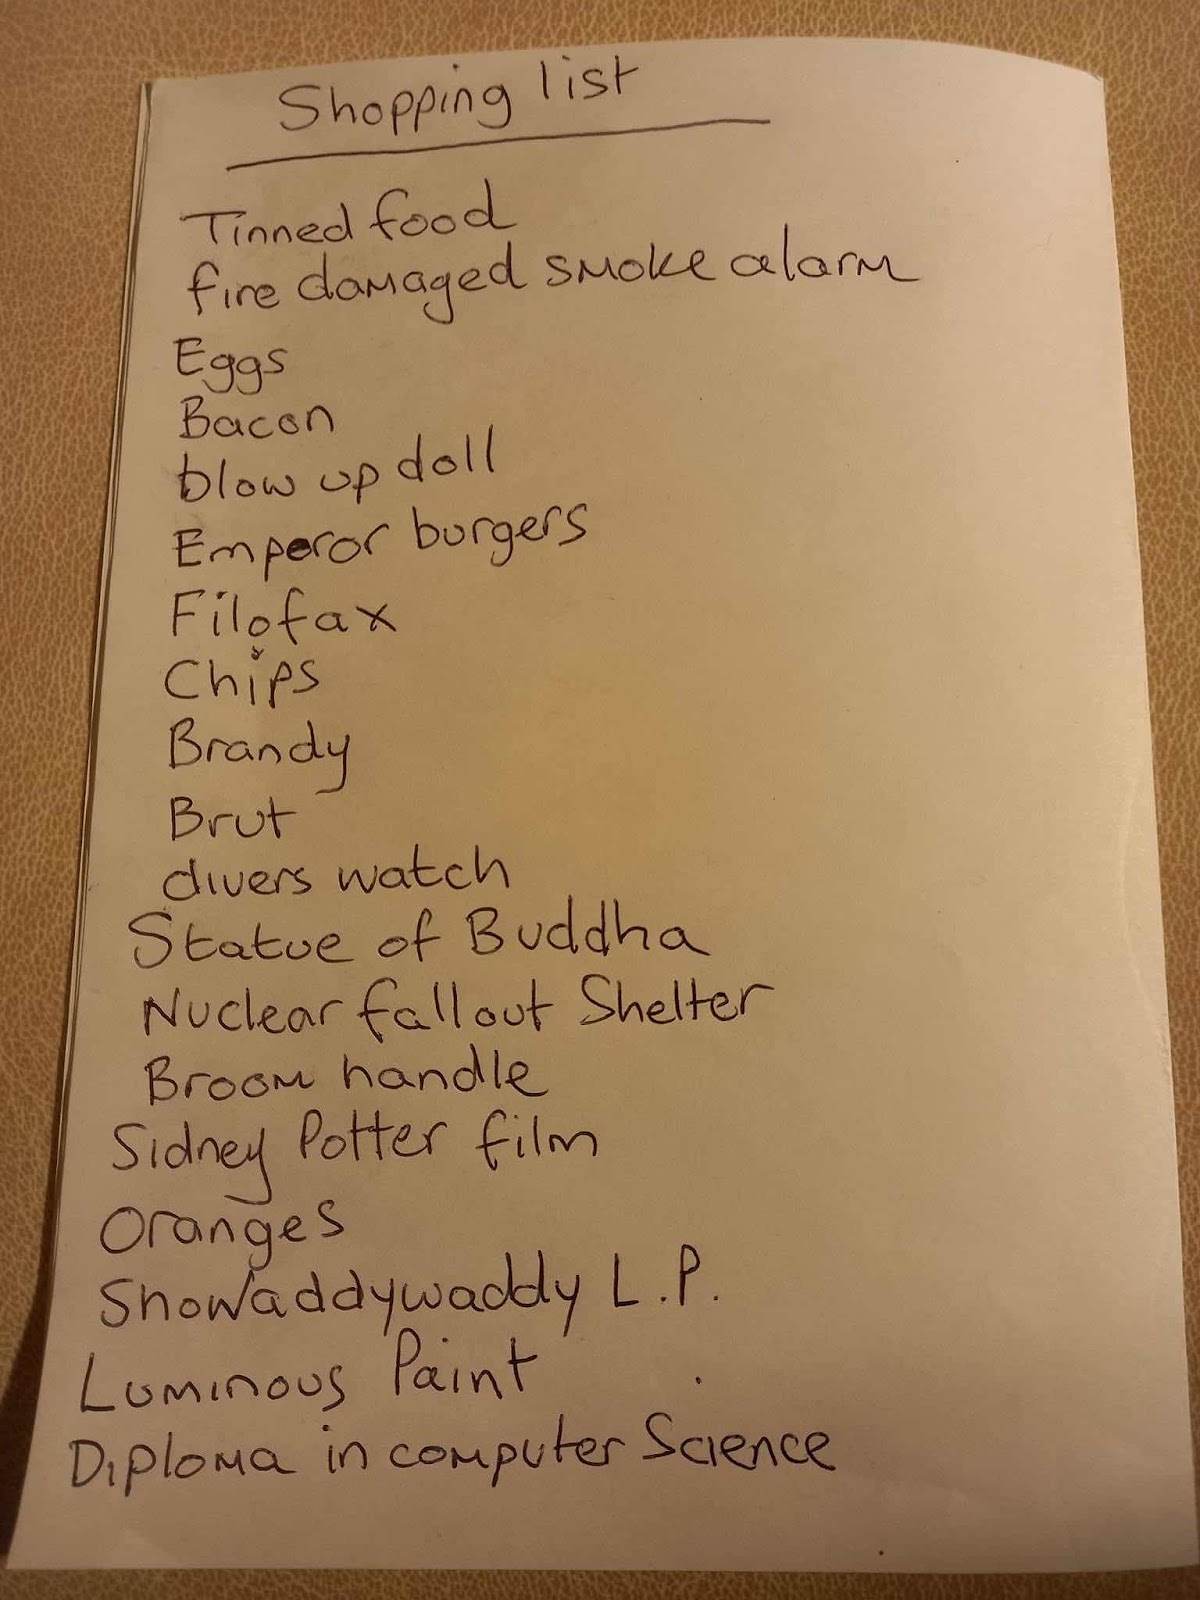 Shopping list
Tinned food
fire damaged smoke alarm
Eggs
Bacon
blow up doll
Emperor burgers
Filofax
Chips
Brandy
Brut
divers watch
Statue of Buddha
Nuclear fallout Shelter
Broom handle
Sidney Potter film
Oranges
Showaddywaddy L.P.
Luminous Paint
Diploma in computer Science